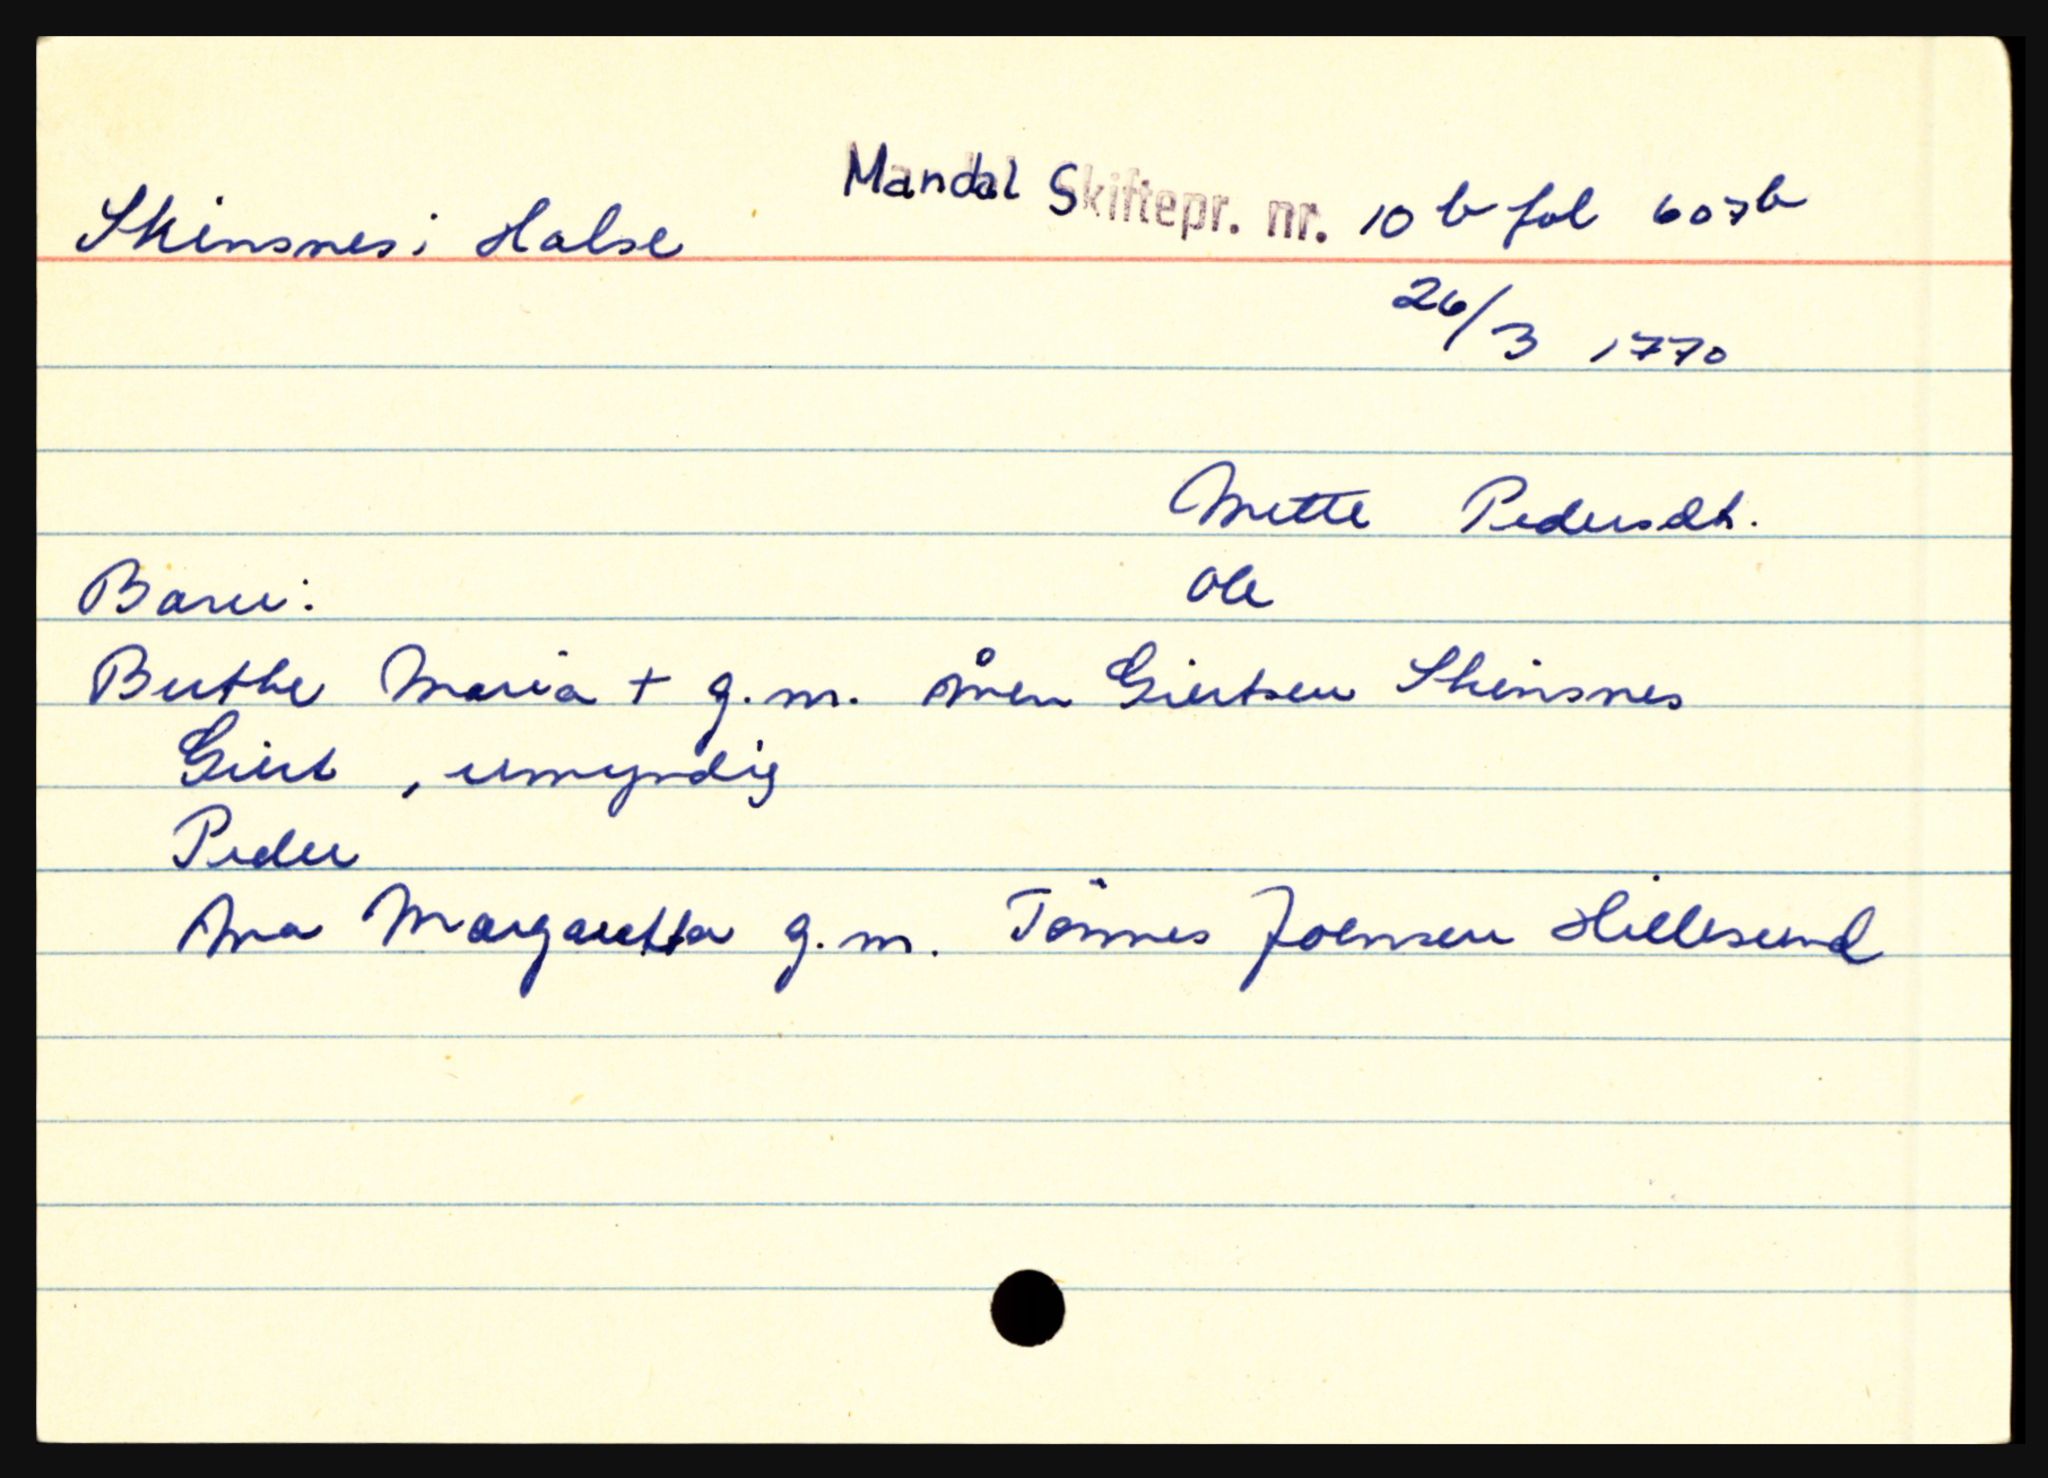 Skinsnes i Halse
Mandal Skiftepr. nr. 10 b fol 607b
26/3 1770
Mette Pedersdt.
Barn:
Ole
Berthe Maria + g.m. Ånen Giertsen Skinsnes
Giert, umyndig
Peder
Ana Margaretta g.m. Tönnes Joensen Hillesund